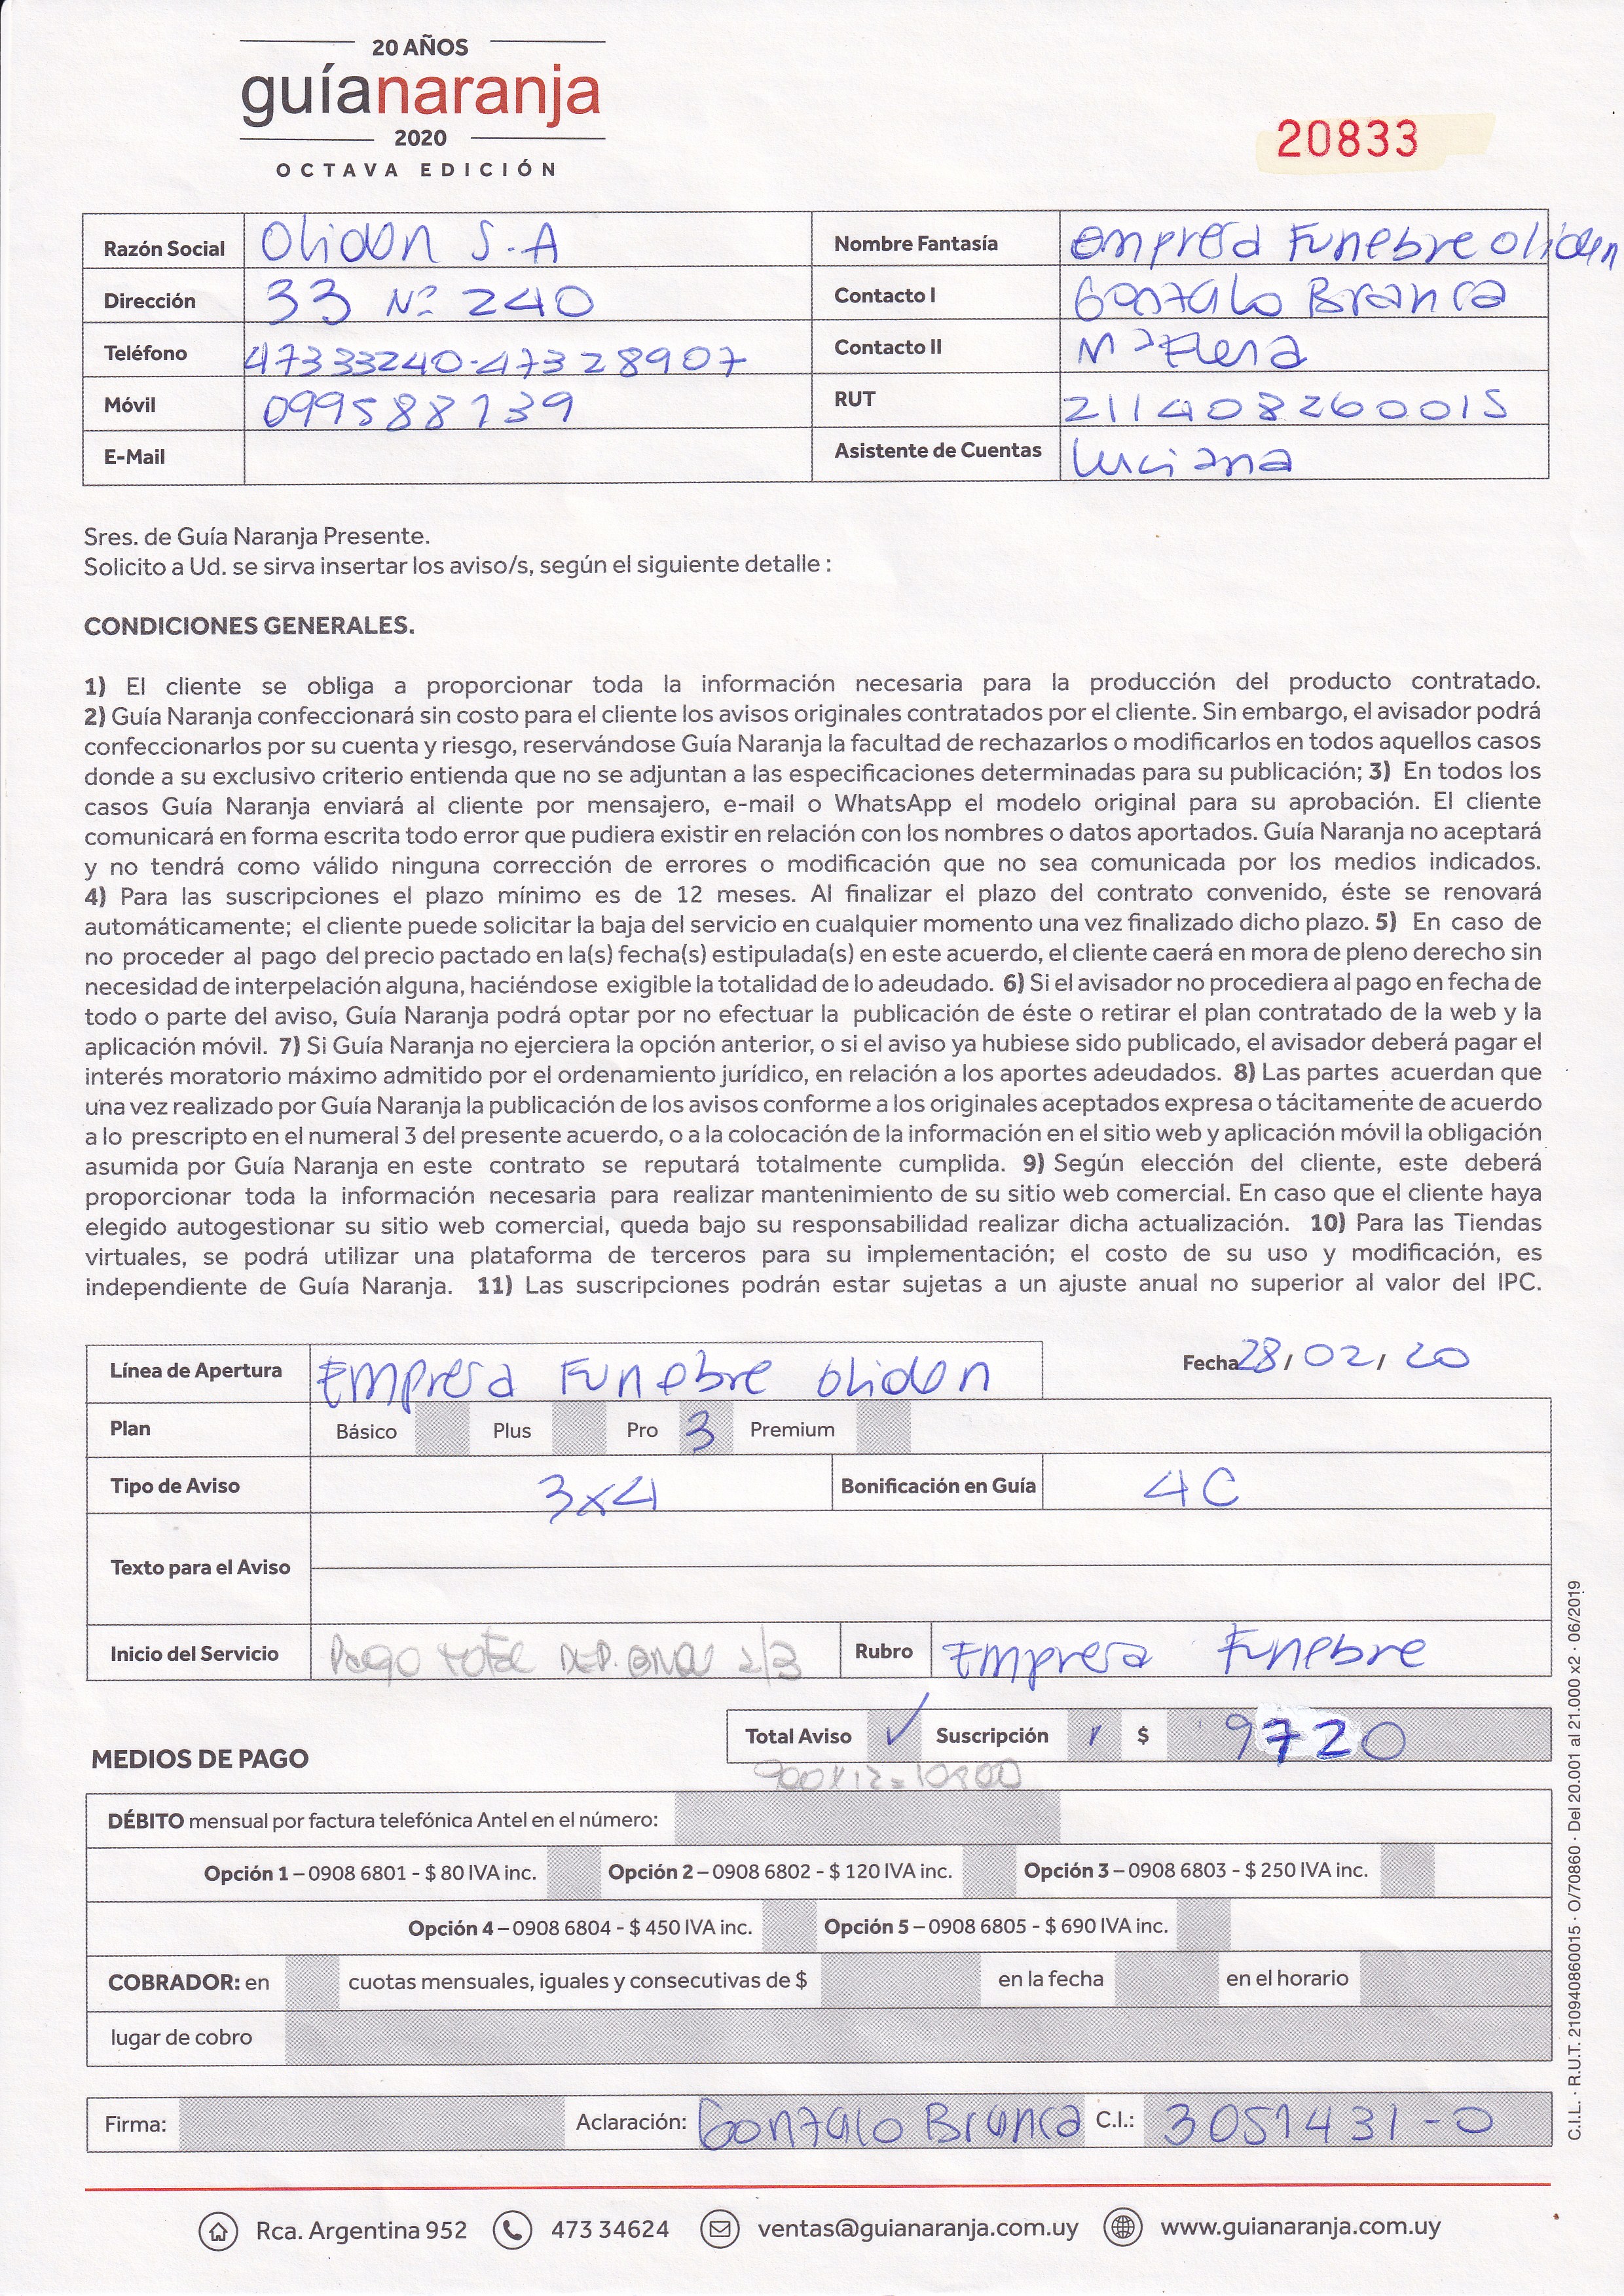 20 AÑOS
guíanaranja
2020
OCTAVA EDICIÓN
20833
Razón Social Olidon S.A Nombre Fantasía Empresa Funebre Olidon
Dirección 33 Nº 240 Contacto I Gonzalo Branca
Teléfono 47333240-47328907 Contacto II Mª Elena
Móvil 099588139 RUT 211408260015
E-Mail Asistente de Cuentas Luciana
Sres. de Guía Naranja Presente.
Solicito a Ud. se sirva insertar los aviso/s, según el siguiente detalle :
CONDICIONES GENERALES.
1) El cliente se obliga a proporcionar toda la información necesaria para la producción del producto contratado.
2) Guía Naranja confeccionará sin costo para el cliente los avisos originales contratados por el cliente. Sin embargo, el avisador podrá
confeccionarlos por su cuenta y riesgo, reservándose Guía Naranja la facultad de rechazarlos o modificarlos en todos aquellos casos
donde a su exclusivo criterio entienda que no se adjuntan a las especificaciones determinadas para su publicación; 3) En todos los
casos Guía Naranja enviará al cliente por mensajero, e-mail o WhatsApp el modelo original para su aprobación. El cliente
comunicará en forma escrita todo error que pudiera existir en relación con los nombres o datos aportados. Guía Naranja no aceptará
y no tendrá como válido ninguna corrección de errores o modificación que no sea comunicada por los medios indicados.
4) Para las suscripciones el plazo mínimo es de 12 meses. Al finalizar el plazo del contrato convenido, éste se renovará
automáticamente; el cliente puede solicitar la baja del servicio en cualquier momento una vez finalizado dicho plazo. 5) En caso de
no proceder al pago del precio pactado en la(s) fecha(s) estipulada(s) en este acuerdo, el cliente caerá en mora de pleno derecho sin
necesidad de interpelación alguna, haciéndose exigible la totalidad de lo adeudado. 6) Si el avisador no procediera al pago en fecha de
todo o parte del aviso, Guía Naranja podrá optar por no efectuar la publicación de éste o retirar el plan contratado de la web y la
aplicación móvil. 7) Si Guía Naranja no ejerciera la opción anterior, o si el aviso ya hubiese sido publicado, el avisador deberá pagar el
interés moratorio máximo admitido por el ordenamiento jurídico, en relación a los aportes adeudados. 8) Las partes acuerdan que
una vez realizado por Guía Naranja la publicación de los avisos conforme a los originales aceptados expresa o tácitamente de acuerdo
a lo prescripto en el numeral 3 del presente acuerdo, o a la colocación de la información en el sitio web y aplicación móvil la obligación
asumida por Guía Naranja en este contrato se reputará totalmente cumplida. 9) Según elección del cliente, este deberá
proporcionar toda la información necesaria para realizar mantenimiento de su sitio web comercial. En caso que el cliente haya
elegido autogestionar su sitio web comercial, queda bajo su responsabilidad realizar dicha actualización. 10) Para las Tiendas
virtuales, se podrá utilizar una plataforma de terceros para su implementación; el costo de su uso y modificación, es
independiente de Guía Naranja. 11) Las suscripciones podrán estar sujetas a un ajuste anual no superior al valor del IPC.
Línea de Apertura Empresa Funebre Olidon Fecha 28 / 02 / 20
Plan Básico Plus Pro 3 Premium
Tipo de Aviso 3x4 Bonificación en Guía 4C
Texto para el Aviso
Inicio del Servicio Pago total DEP. 2/3 Rubro Empresa Funebre
Total Aviso ✓ Suscripción $ 9720
900x12=10800
MEDIOS DE PAGO
DÉBITO mensual por factura telefónica Antel en el número:
Opción 1 – 0908 6801 - $ 80 IVA inc. Opción 2 – 0908 6802 - $ 120 IVA inc. Opción 3 – 0908 6803 - $ 250 IVA inc.
Opción 4 – 0908 6804 - $ 450 IVA inc. Opción 5 – 0908 6805 - $ 690 IVA inc.
COBRADOR: en cuotas mensuales, iguales y consecutivas de $ en la fecha en el horario
lugar de cobro
Firma: Aclaración: Gonzalo Branca C.I.: 3051431-0
Rca. Argentina 952 473 34624 ventas@guianaranja.com.uy www.guianaranja.com.uy
C.I.L. · R.U.T. 210940860015 · O/70860 · Del 20.001 al 21.000 x2 · 06/2019